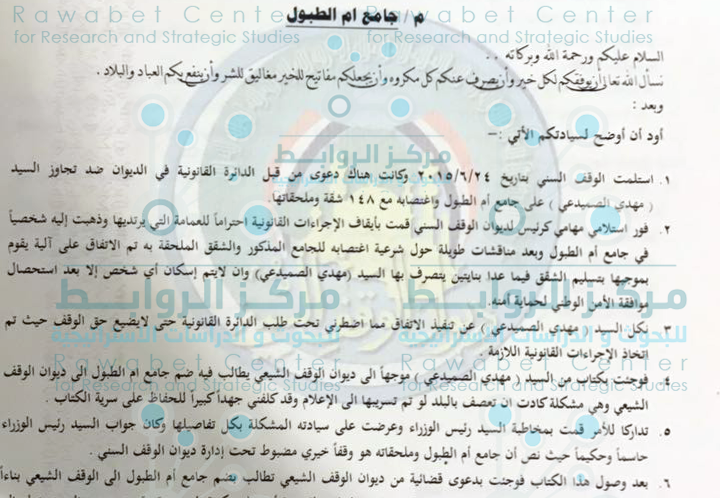 م / جامع ام الطبول
Rawabet Center
for Research and Strategic Studies
Rawabet Center
for Research and Strategic Studies
السلام عليكم ورحمة الله وبركاته . .
نسأل الله تعالى أن يوفقكم لكل خير وأن يصرف عنكم كل مكروه وأن يجعلكم مفاتيح للخير مغاليق للشر وأن ينفع بكم العباد والبلاد .
وبعد :
أود أن أوضح لسيادتكم الأتي :-
مركز الروابط
١. استلمت الوقف السني بتاريخ ٢٠١٥/٦/٢٤ وكانت هناك دعوى من قبل الدائرة القانونية في الديوان ضد تجاوز السيد
( مهدي الصميدعي ) على جامع أم الطبول واغتصابه مع ١٤٨ شقة وملحقاتها.
٢. فور استلامي مهامي كرئيس لديوان الوقف السني قمت بأيقاف الإجراءات القانونية احتراماً للعمامة التي يرتديها وذهبت إليه شخصياً
في جامع أم الطبول وبعد مناقشات طويلة حول شرعية اغتصابه للجامع المذكور والشقق الملحقة به تم الاتفاق على آلية يقوم
بموجبها بتسليم الشقق فيما عدا بنايتين يتصرف بها السيد (مهدي الصميدعي) وان لايتم إسكان أي شخص إلا بعد استحصال
موافقة الأمن الوطني لحماية أمنه.
مركز الروابط
مركز الروابط
للبحوث و الدراسات الاستراتيجية
للبحوث و الدراسات الاستراتيجية
٣. نكل السيد ( مهدي الصميدعي ) عن تنفيذ الاتفاق مما اضطرني تحت طلب الدائرة القانونية حتى لايضيع حق الوقف حيث تم
إتخاذ الإجراءات القانونية اللازمة .
Rawabet Center
for Research and Strategic Studies
Rawabet Center
for Research and Strategic Studies
٤. فوجئت بكتاب من السيد ( مهدي الصميدعي ) موجهاً الى ديوان الوقف الشيعي يطالب فيه ضم جامع أم الطبول الى ديوان الوقف
الشيعي وهي مشكلة كادت ان تعصف بالبلد لو تم تسريبها الى الإعلام وقد كلفني جهداً كبيراً للحفاظ على سرية الكتاب .
٥. تداركا للأمر قمت بمخاطبة السيد رئيس الوزراء وعرضت على سيادته المشكلة بكل تفاصيلها وكان جواب السيد رئيس الوزراء
حاسماً وحكيماً حيث نص أن جامع أم الطبول وملحقاته هو وقفاً خيري مضبوط تحت إدارة ديوان الوقف السني .
٦. بعد وصول هذا الكتاب فوجئت بدعوى قضائية من ديوان الوقف الشيعي تطالب بضم جامع أم الطبول الى الوقف الشيعي بناءاً